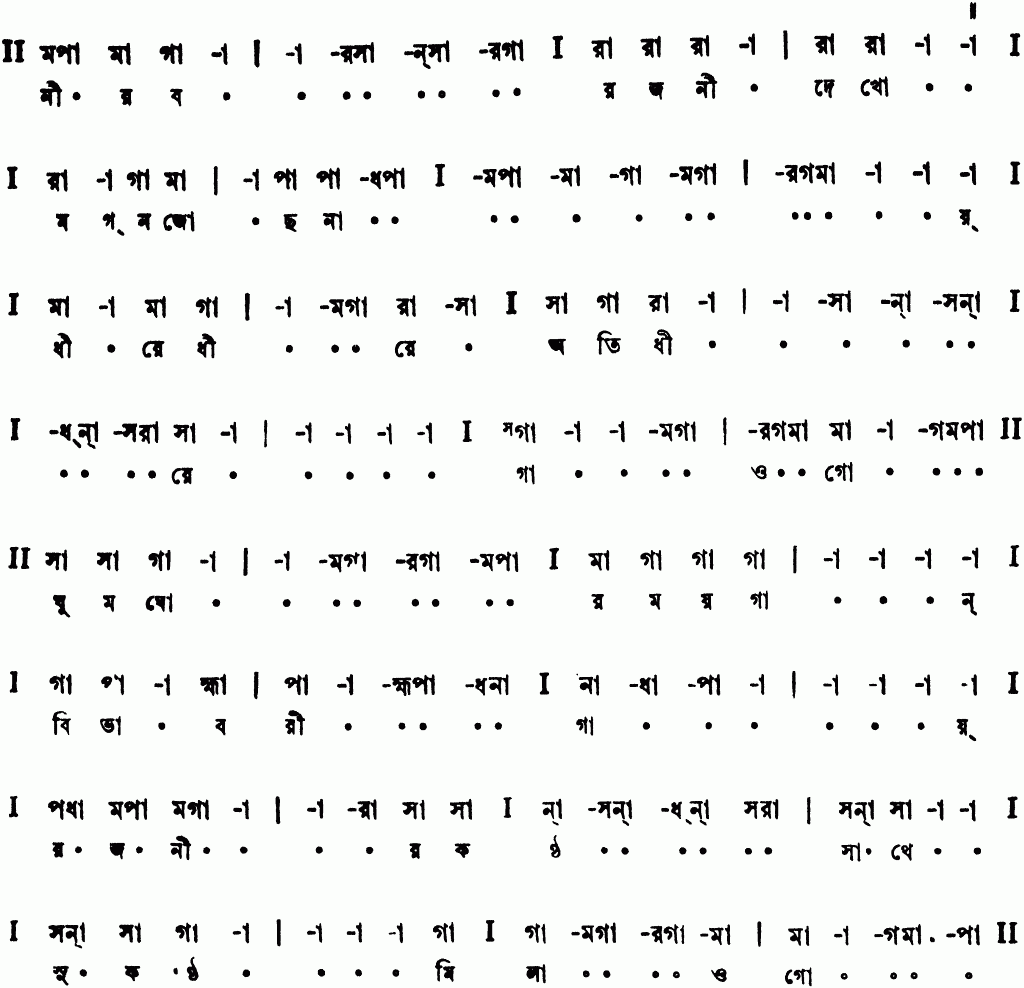 ॥
II মপা মা গা -া | -া -রসা -ন্‌সা -রগা I রা রা রা -া | রা রা -া -া I
নী • র ব • • • • • • • • র জ নী • দে খো • •
I রা -া গা মা | -া পা পা -ধপা I -মপা -মা -গা -মগা | -রগমা -া -া -া I
ম গ্ ন জো • ছ না • • • • • • • • • • • • • য়্
I মা -া মা গা | -া -মগা রা -সা I সা গা রা -া | -া -সা -ন্‌া -সন্‌া I
ধী • রে ধী • • • রে • অ তি ধী • • • • • •
I -ধ্‌ন্‌া -সরা সা -া | -া -া -া -া I সগা -া -া -মগা | -রগমা মা -া -গমপা II
• • • • রে • • • • • গা • • • • ও • • গো • • • •
II সা সা গা -া | -া -মগা -রগা -মপা I মা গা গা গা | -া -া -া -া I
ঘু ম ঘো • • • • • • • • র ম য় গা • • • ন্
I গা পা -া হ্মা | পা -া -হ্মপা -ধনা I না -ধা -পা -া | -া -া -া -া I
বি ভা • ব রী • • • • • গা • • • • • • য়্
I পধা মপা মগা -া | -া -রা সা সা I ন্‌া -সন্‌া -ধ্‌ন্‌া সরা | সন্‌া সা -া -া I
র • জ • নী • • • • র ক ণ্ঠ • • • • • • সা • থে • •
I সন্‌া সা গা -া | -া -া -া গা I গা -মগা -রগা -মা | মা -া -গমা -পা II
সু • ক ণ্ঠ • • • • মি লা • • • • ও গো • • • •